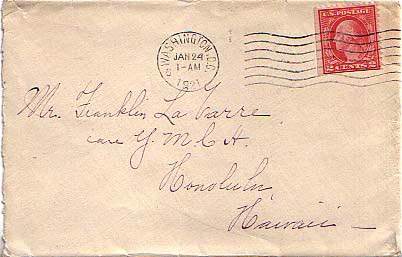 WASHINGTON, D.C.
JAN 24
1-AM
1921
U.S. POSTAGE
2 CENTS 2
Mr. Franklin La Varre
care Y.M.C.A.
Honolulu,
Hawaii